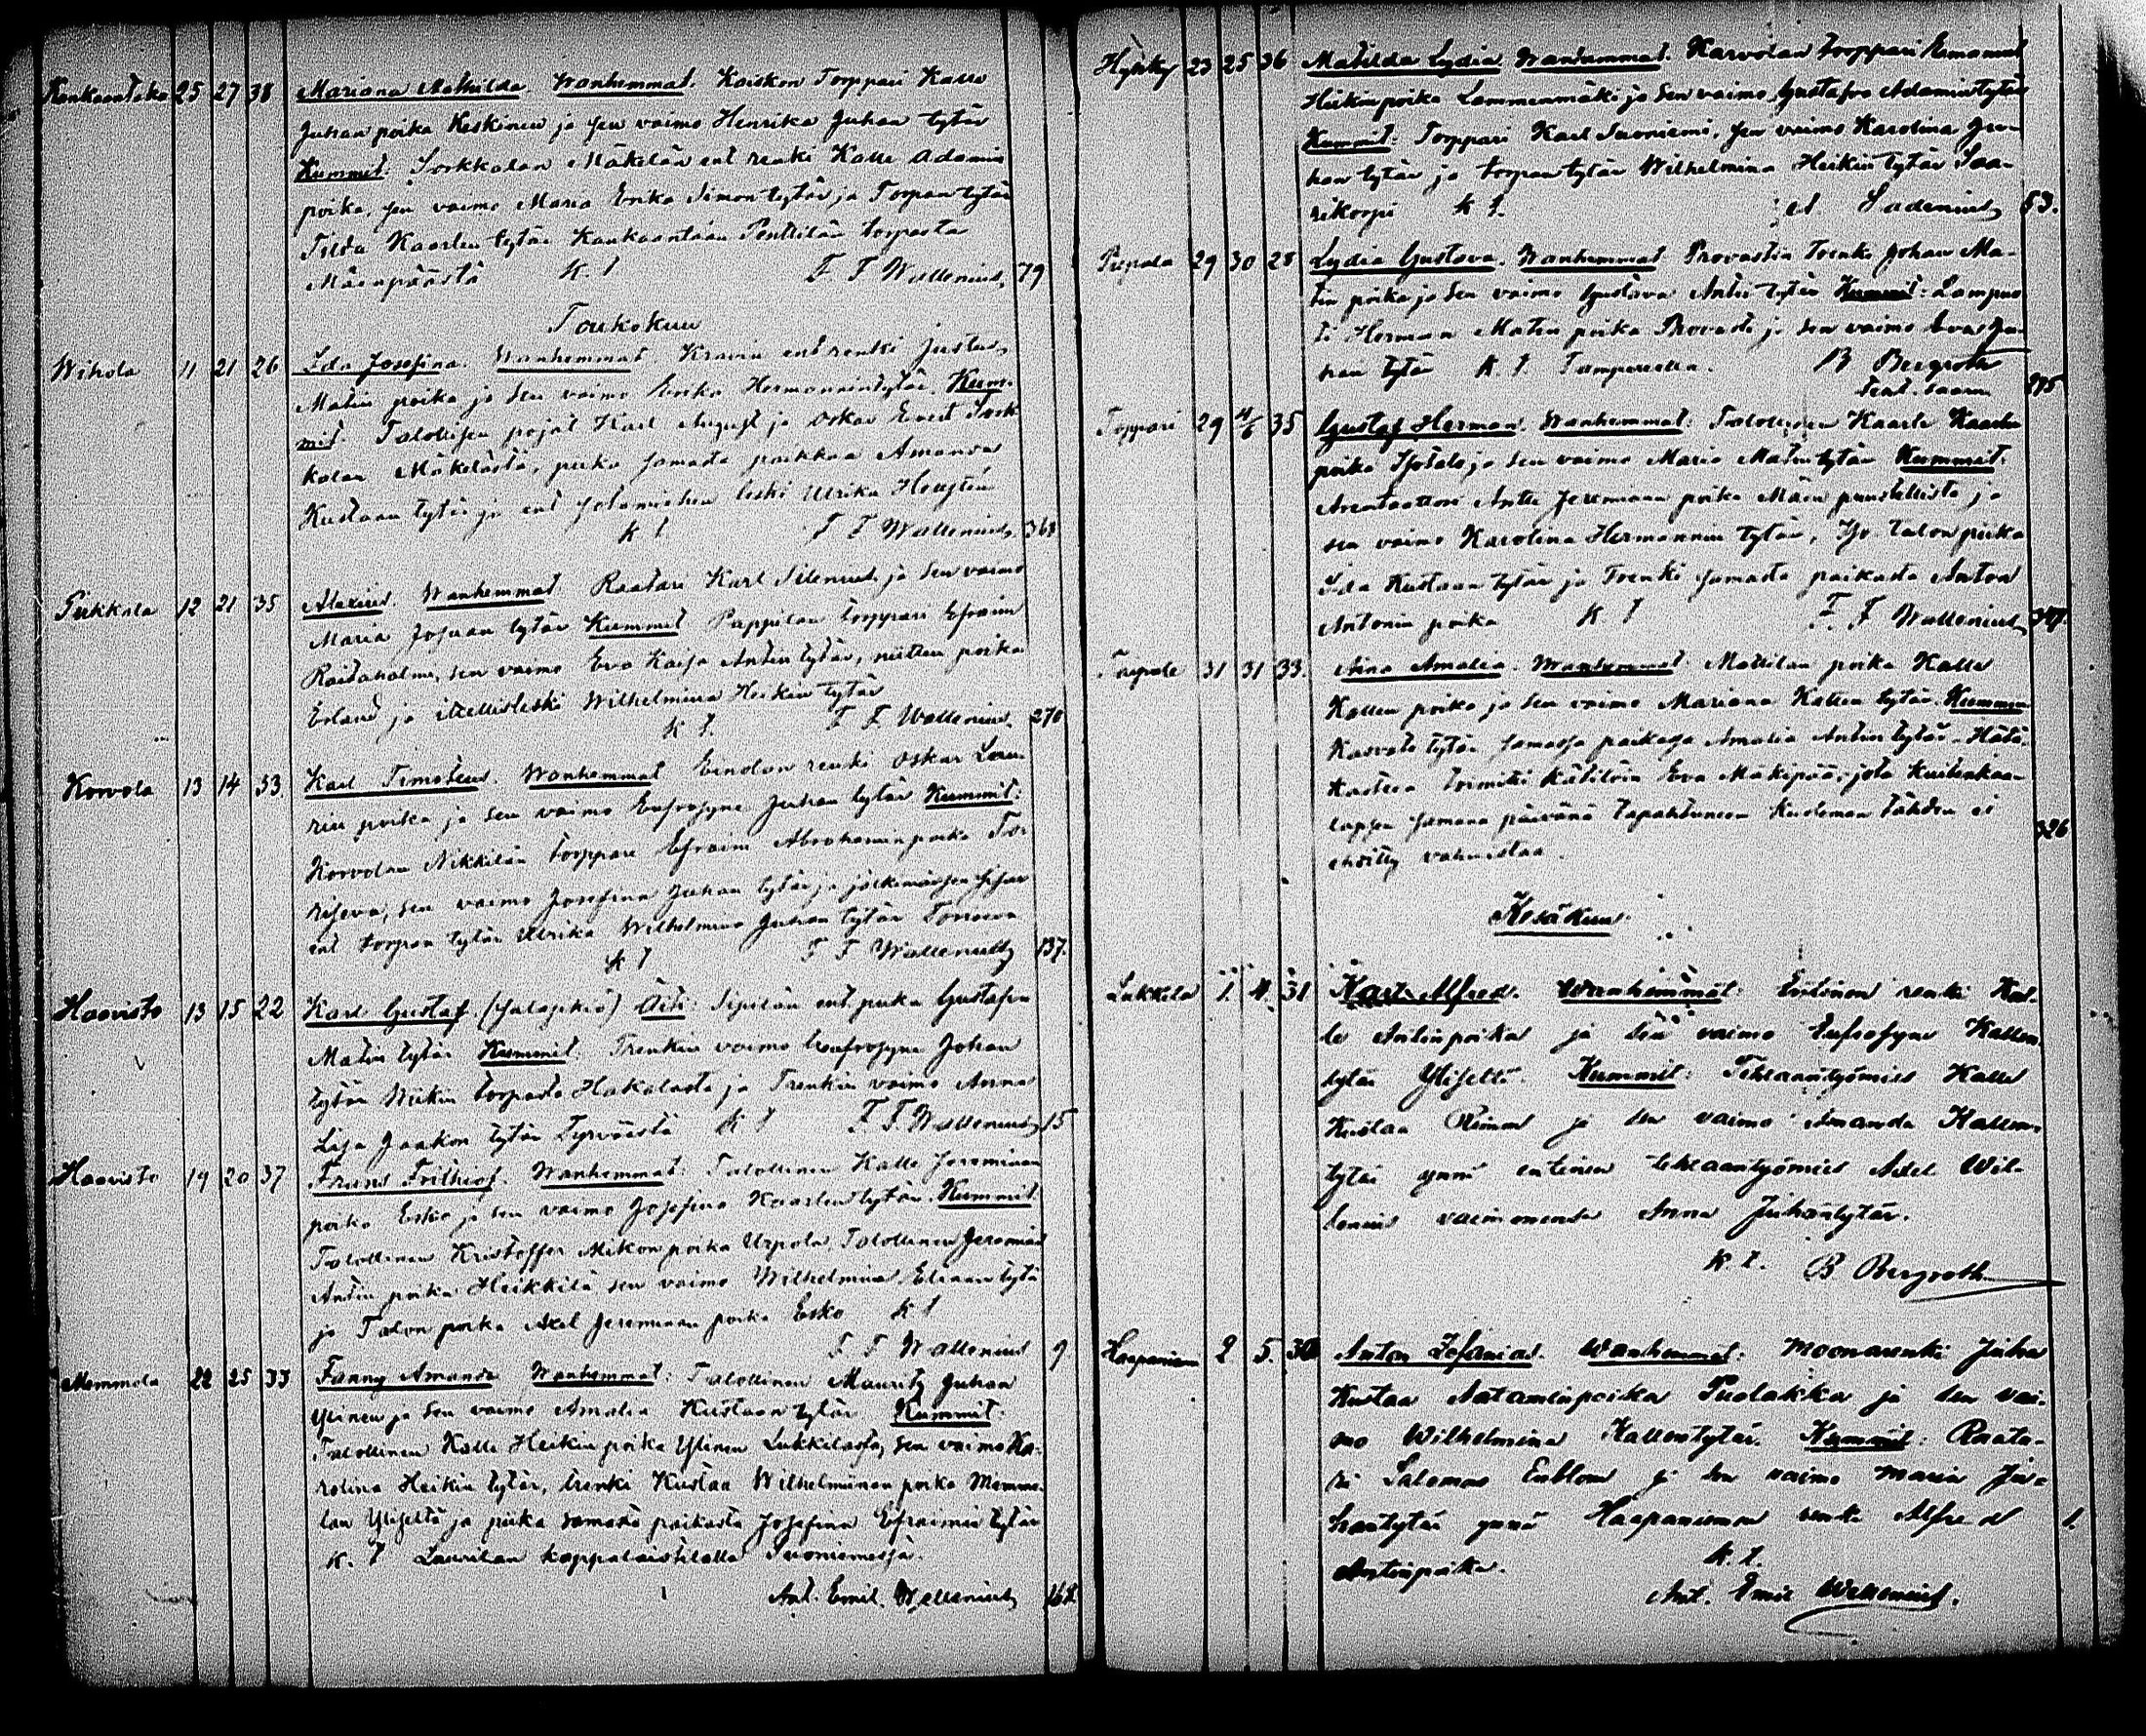 Kankaantaka 25 27 38 Mariana Mathilda. Wanhemmat. Kaiskon Torppari Kalle
Juhan poika Keskinen ja sen vaimo Henrika Juhan tytär
Kummit: Sorkkalan Mäkelän ent renki Kalle Adamin
poika, sen vaimo Maria Erika Simon tytär ja Torpan tytär
Tilda Kaarlen tytär Kankaantaan Penttilän torpasta
Mäenpäästä k. l F F Wallenius, 79
Toukokuu
Wihola 11 21 26 Ida Josefina. Wanhemmat. Kranin ent renki Justus
Matin poika ja sen vaimo Erika Hermannintytär. Kum-
mit. Talollisen pojat Karl August ja Oskar Evert Sork
kalan Mäkelästä, piika samasta paikkaa Amanda
Kustaan tytär ja ent sotamiehen leski Ulrika
k l F F Wallenius, 368
Pirkkala 12 21 35 Alexius. Wanhemmat Raatari Karl Silenius ja sen vaimo
Maria Johan tytär Kummit Pappilan torppari Efraim
Raitaholmi, sen vaimo Eva Kaisa Antin tytär, niitten poika
Erland ja itsellisleski Wilhelmina Heikin tytär
k l. F F Wallenius, 270
Korvola 13 14 33. Karl Timoteus. Wanhemmat renki Oskar Lau-
rin poika ja sen vaimo Eufrosyne Juhan tytär Kummit:
Korvolan Nikkilän torppari Efraim Abrahamin poika To-
riseva, sen vaimo Josefina Juhan tytär ja jälkimäisen sisar
ent torpan tytär Ulrika Wilhelmina Juhan tytär Toriseva
k l F F Wallenius, 137.
Haavisto 13 15 22 Karl Gustaf. (salaphiö) Äiti: Sipilän ent piika Gustafva
Matin tytär Kummit: Trenkin vaimo Eufrosyne Johan
tytär Wiikin torpasta Hakalasta ja Trenkin vaimo Anna
Lisa Jaakon tytär Tyrväästä k l F. F. Wallenius, 15
Haavisto 19 20 37 Frans Frithiof. Wanhemmat: Talollinen Kalle Jeremiaan
poika Esko ja sen vaimo Josefina Kaarlen tytär. Kummit.
Talollinen Kristoffer Mikon poika Urpola, Talollinen Jeremias
Antin poika Heikkilä sen vaimo Wilhelmina Eliaan tytä
ja Talon poika Axel Jeremiaan poika Esko k l
F F Wallenius 9
Memmola 22 25 33 Fanny Amanda Wanhemmat: Talollinen Mauritz Juhan
Ylinen ja sen vaimo Amalia Kustaan tytär. Kummit:
Talollinen Kalle Heikin poika Ylinen Lukkilasta, sen vaimo Ka-
rolina Heikin tytär, trenki Kustaa Wilhelminan poika Memmo-
lan Yliseltä ja piika samasta paikasta Josefina Efraimin tytär
k. l Laurilan kappalaistilalla Suoniemessä.
Ant. Emil. Wallenius, 168
Hyhky 23 25 36 Matilda Lydia. Wanhemmat. Karvolan torppari Emanuel
Heikin poika Lammenmäki ja sen vaimo Gustafva Adamintytär
Kummit: Torppari Karl Suoniemi, sen vaimo Karolina Ju-
han tytär ja torpan tytär Wilhelmina Heikin tytär Saa-
rikorpi k l. Sadenius, 53.
Pispala 29 30 28 Lydia Gustava. Wanhemmat. Provastin trenki Johan Ma-
tin poika ja sen vaimo Gustava Antin tytär Kummit: Lampuo
ti Herman Matin poika Provasti ja sen vaimo Eva Ju-
han tytär k. l. Tampereella. B Bergroth
375
Toppari 29 4/6 35 Gustaf Herman. Wanhemmat: Talollinen Kaarle Kaarlen
poika Isotalo ja sen vaimo Maria Matin tytär Kummit.
Arentaattori Antti Jeremiaan poika Mäen puustellista ja
sen vaimo Karolina Hermannin tytär, Iso talon piika
Ida Kustaan tytär ja Trenki samasta paikasta Anton
Antonin poika k l F. F Wallenius, 347.
31 31 33. Aina Amalia. Wanhemmat. Mattilan poika Kalle
Kallen poika ja sen vaimo Mariana Kallen tytär. Kummi
Kasvatti tytär samassa paikassa Amalia Antin tytär. Hätä-
kasteen toimitti kätilöin Eva Mäkipää, jota kuitenkaan
lapsen samana päivänä tapahtuneen kuoleman tähden ei
ehditty vahvistaa. 326
Kesäkuu.
Lukkila 1. 4. 31 Karl Alfred. Wanhemmat: Entinen renki Kal-
le Antinpoika ja sen vaimo Eufrosyne Kallen-
tytär Yliseltä. Kummit: Tehtaantyömies Kalle
Kustaa ja sen vaimo Amanda Kallen-
tytär ynnä entinen tehtaantyömies Axel Wil-
lenius vaimonensa Anna Juhantytär.
k. l. B. Bergroth
Haapaniemi 2 5. 30 Anton Sefanias. Wanhemmat: Moonarenki Juha
Kustaa Aataminpoika Puolakka ja sen vai-
mo Wilhelmina Kallentytär. Kummit: Raata-
ri Salomon Enblom ja sen vaimo Maria Ju-
hantytär ynnä Haapaniemen renki Alfred 1.
Antinpoika. k. l.
Ant. Emil Wallenius.